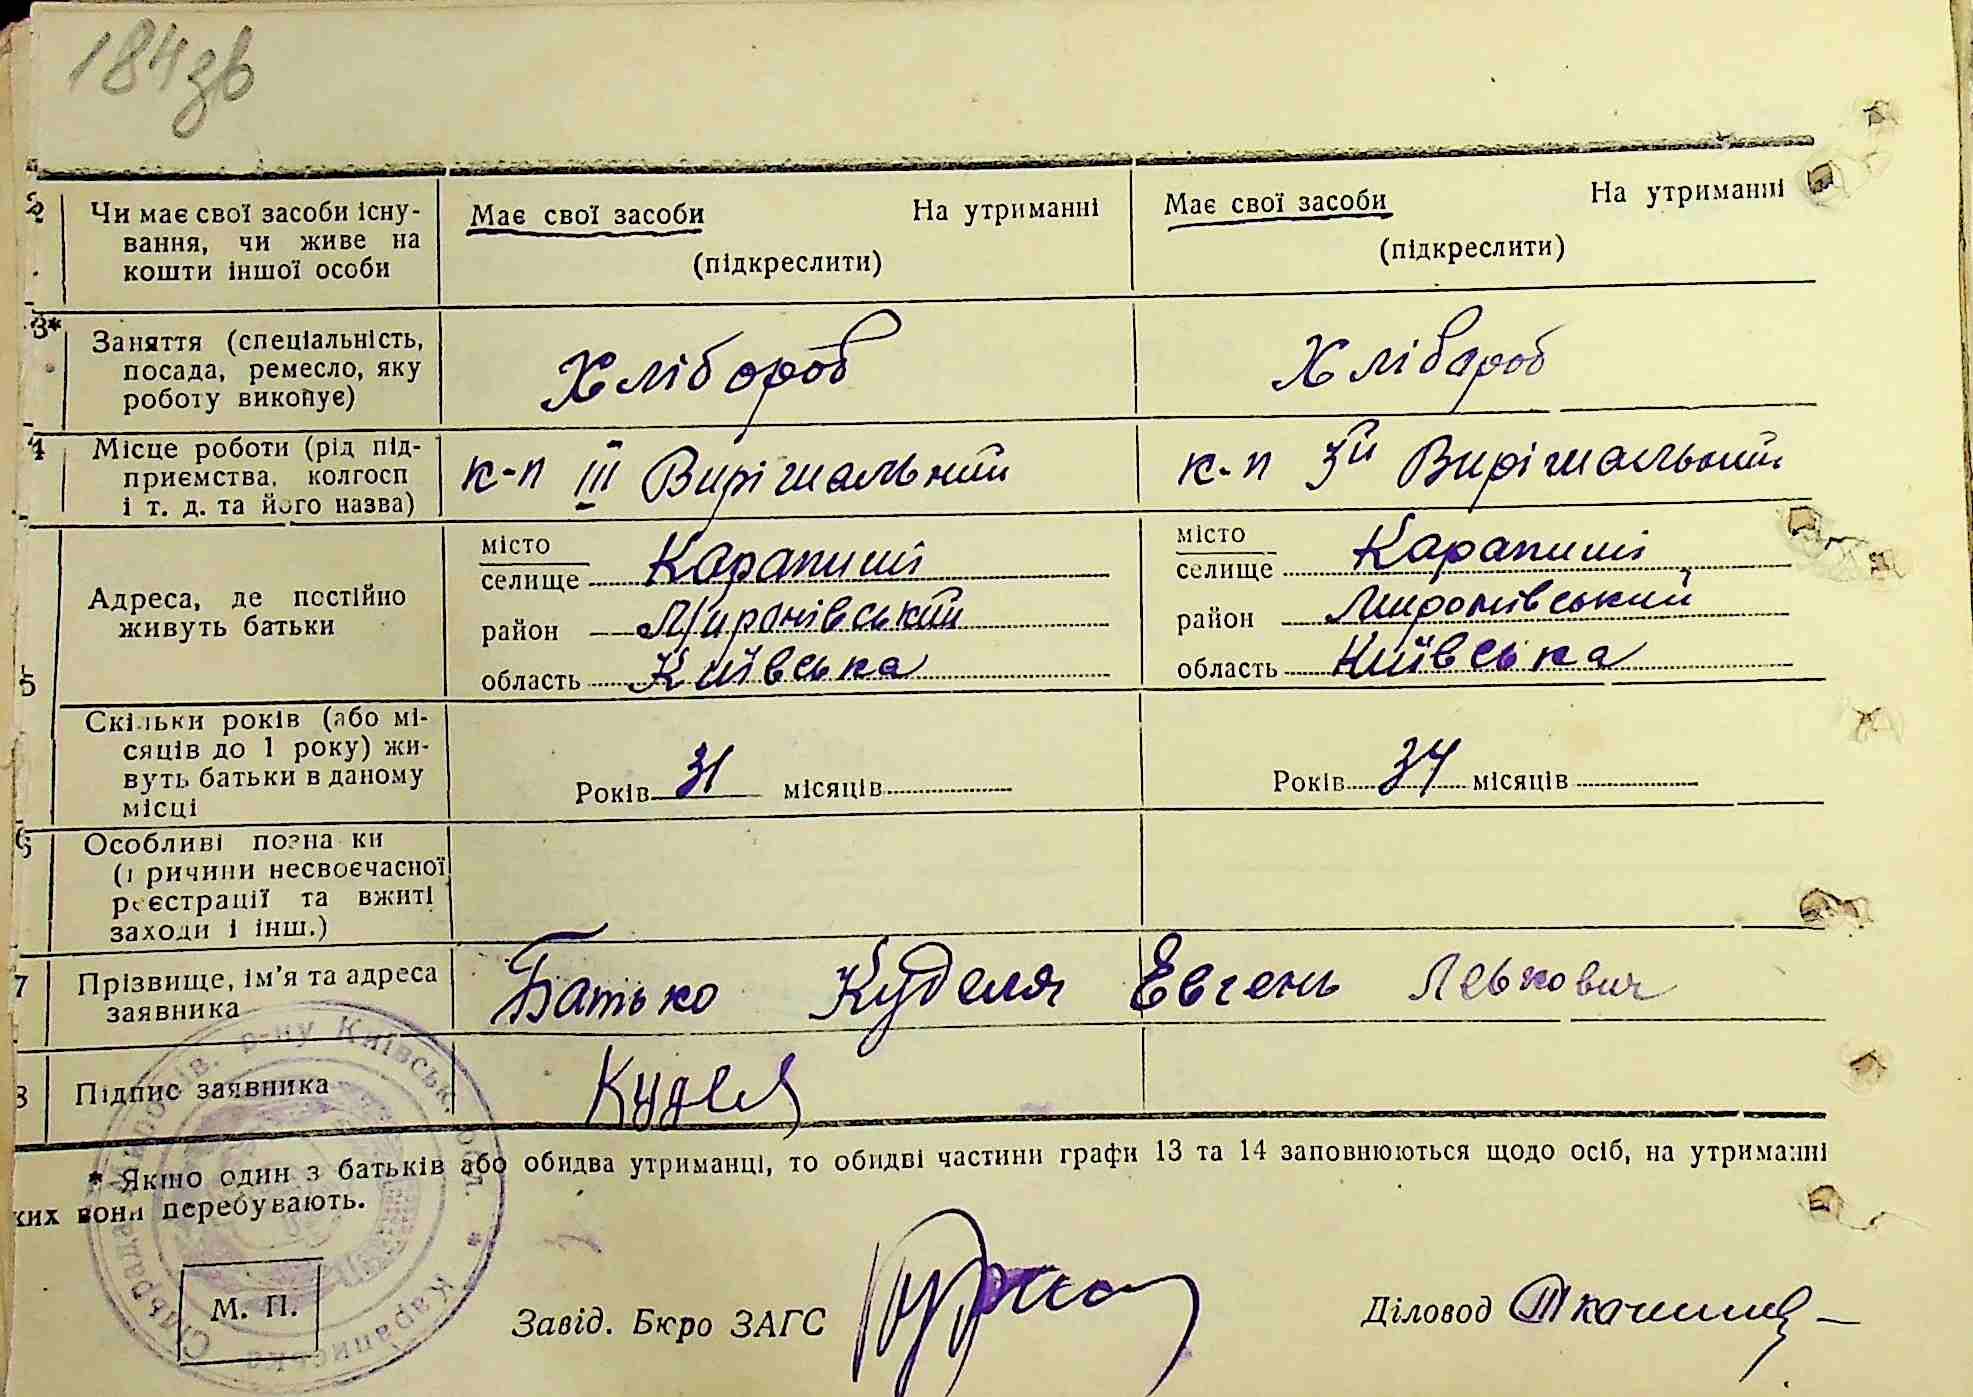 184зв
2 Чи має свої засоби існу-
вання, чи живе на
кошти іншої особи
Має свої засоби На утриманні
(підкреслити)
Має свої засоби На утриманні
(підкреслити)
3* Заняття (спеціальність,
посада, ремесло, яку
роботу виконує)
Хлібороб
Хлібароб
4 Місце роботи (рід під-
приємства, колгосп
і т. д. та його назва)
к-п ІІІ Вирішальний
к-п 3й Вирішальний
5 Адреса, де постійно
живуть батьки
місто
селище Карапиші
район Миронівський
область Київська
місто
селище Карапиші
район Миронівський
область Київська
Скільки років (або мі-
сяців до 1 року) жи-
вуть батьки в даному
місці
Років 31 місяців
Років 34 місяців
6 Особливі позна ки
(причини несвоєчасної
реєстрації та вжиті
заходи і інш.)
7 Прізвище, ім'я та адреса
заявника
Батько Куделя Евгень Левкович
8 Підпис заявника
Куделя
* Якщо один з батьків або обидва утриманці, то обидві частини графи 13 та 14 заповнюються щодо осіб, на утриманні
ких вони перебувають.
Сільрада Миронів. р-ну Київськ. обл. * Караписька
М. П.
Завід. Бюро ЗАГС
Діловод